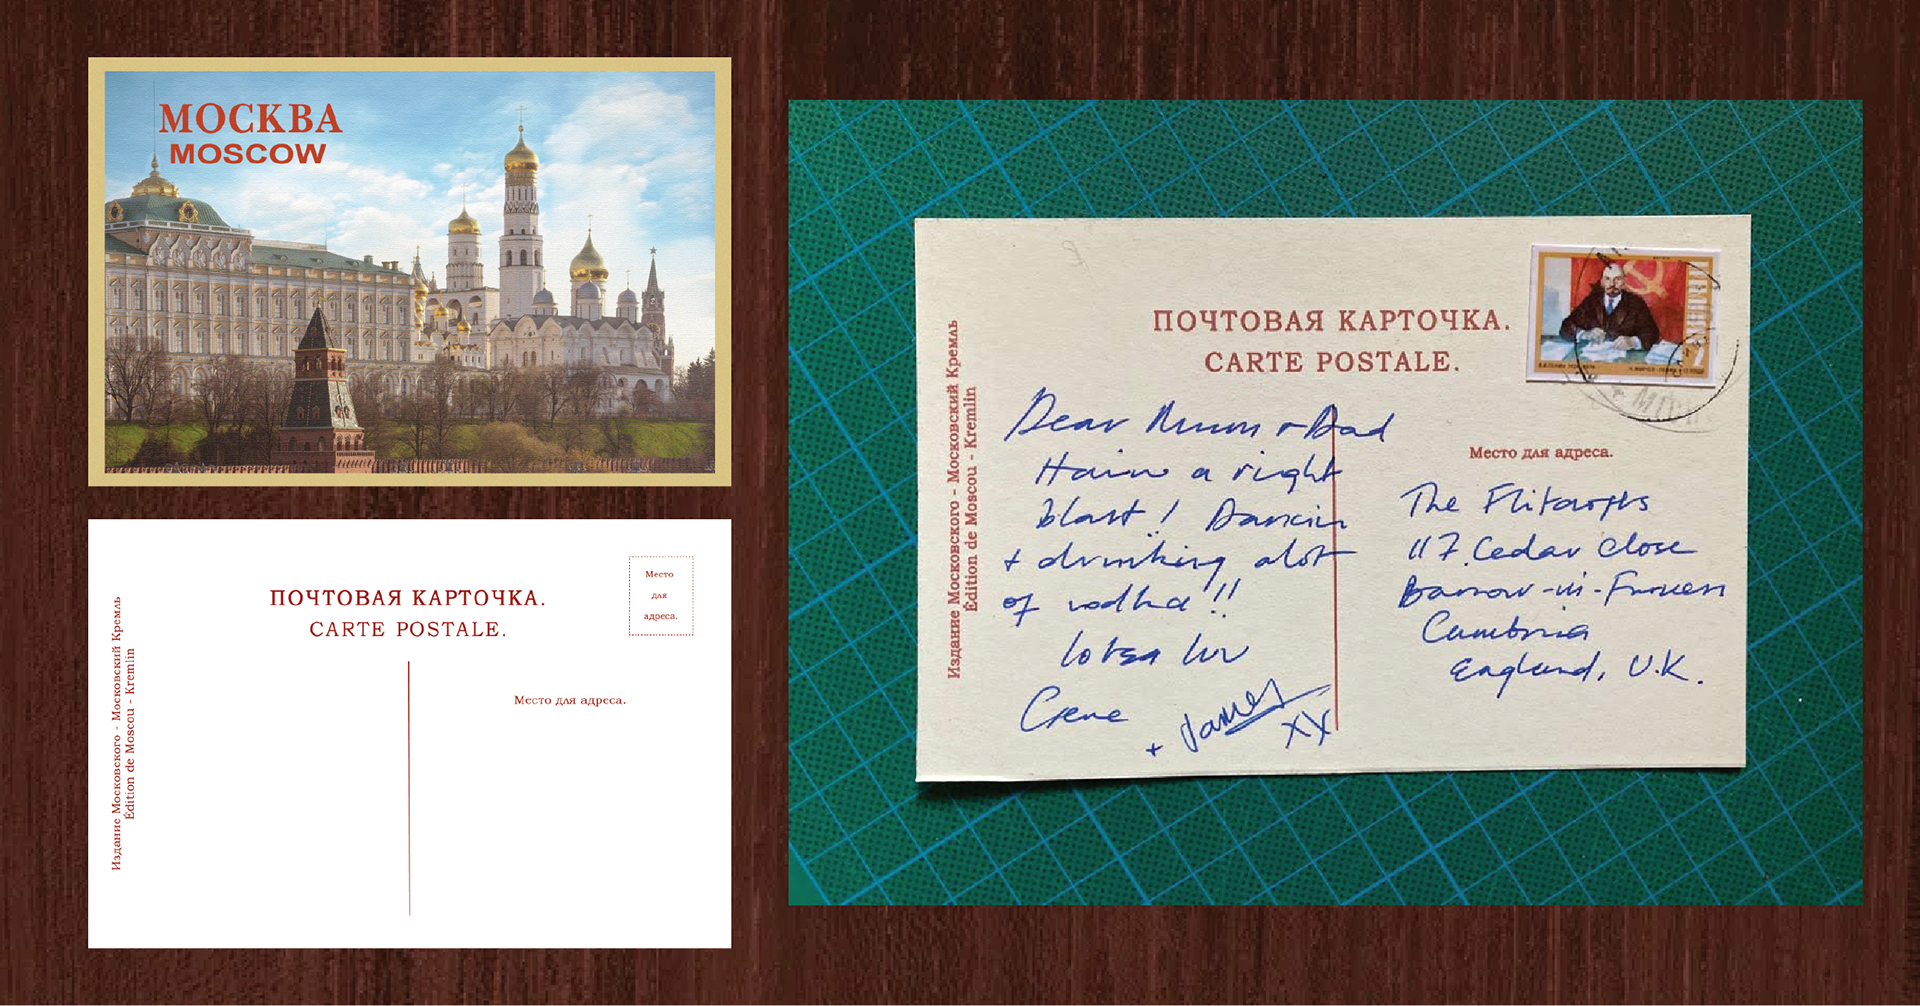 МОСКВА
MOSCOW
Издание Московского - Московский Кремль
Édition de Moscou - Kremlin
ПОЧТОВАЯ КАРТОЧКА.
CARTE POSTALE.
Место
для
адреса.
Место для адреса.
Издание Московского - Московский Кремль
Édition de Moscou - Kremlin
ПОЧТОВАЯ КАРТОЧКА.
CARTE POSTALE.
Dear Mum + Dad
Havin a right
blast! Dancin
+ drinking alot
of vodka!!
lotsa luv
Gene
+ James
XX
Место для адреса.
The
117 Cedar Close
Barrow-in-Furness
Cumbria
England, U.K.